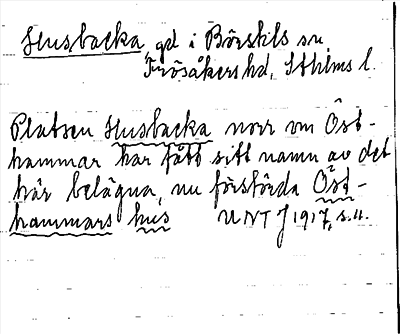 Husbacka, gd i Börstils sn
Frösåkers hd, Sthlms l.
Platsen Husbacka norr om Öst-
hammar har fått sitt namn av det
här belägna, nu förstörda Öst-
hammars hus UNT J 1917, s. 4.